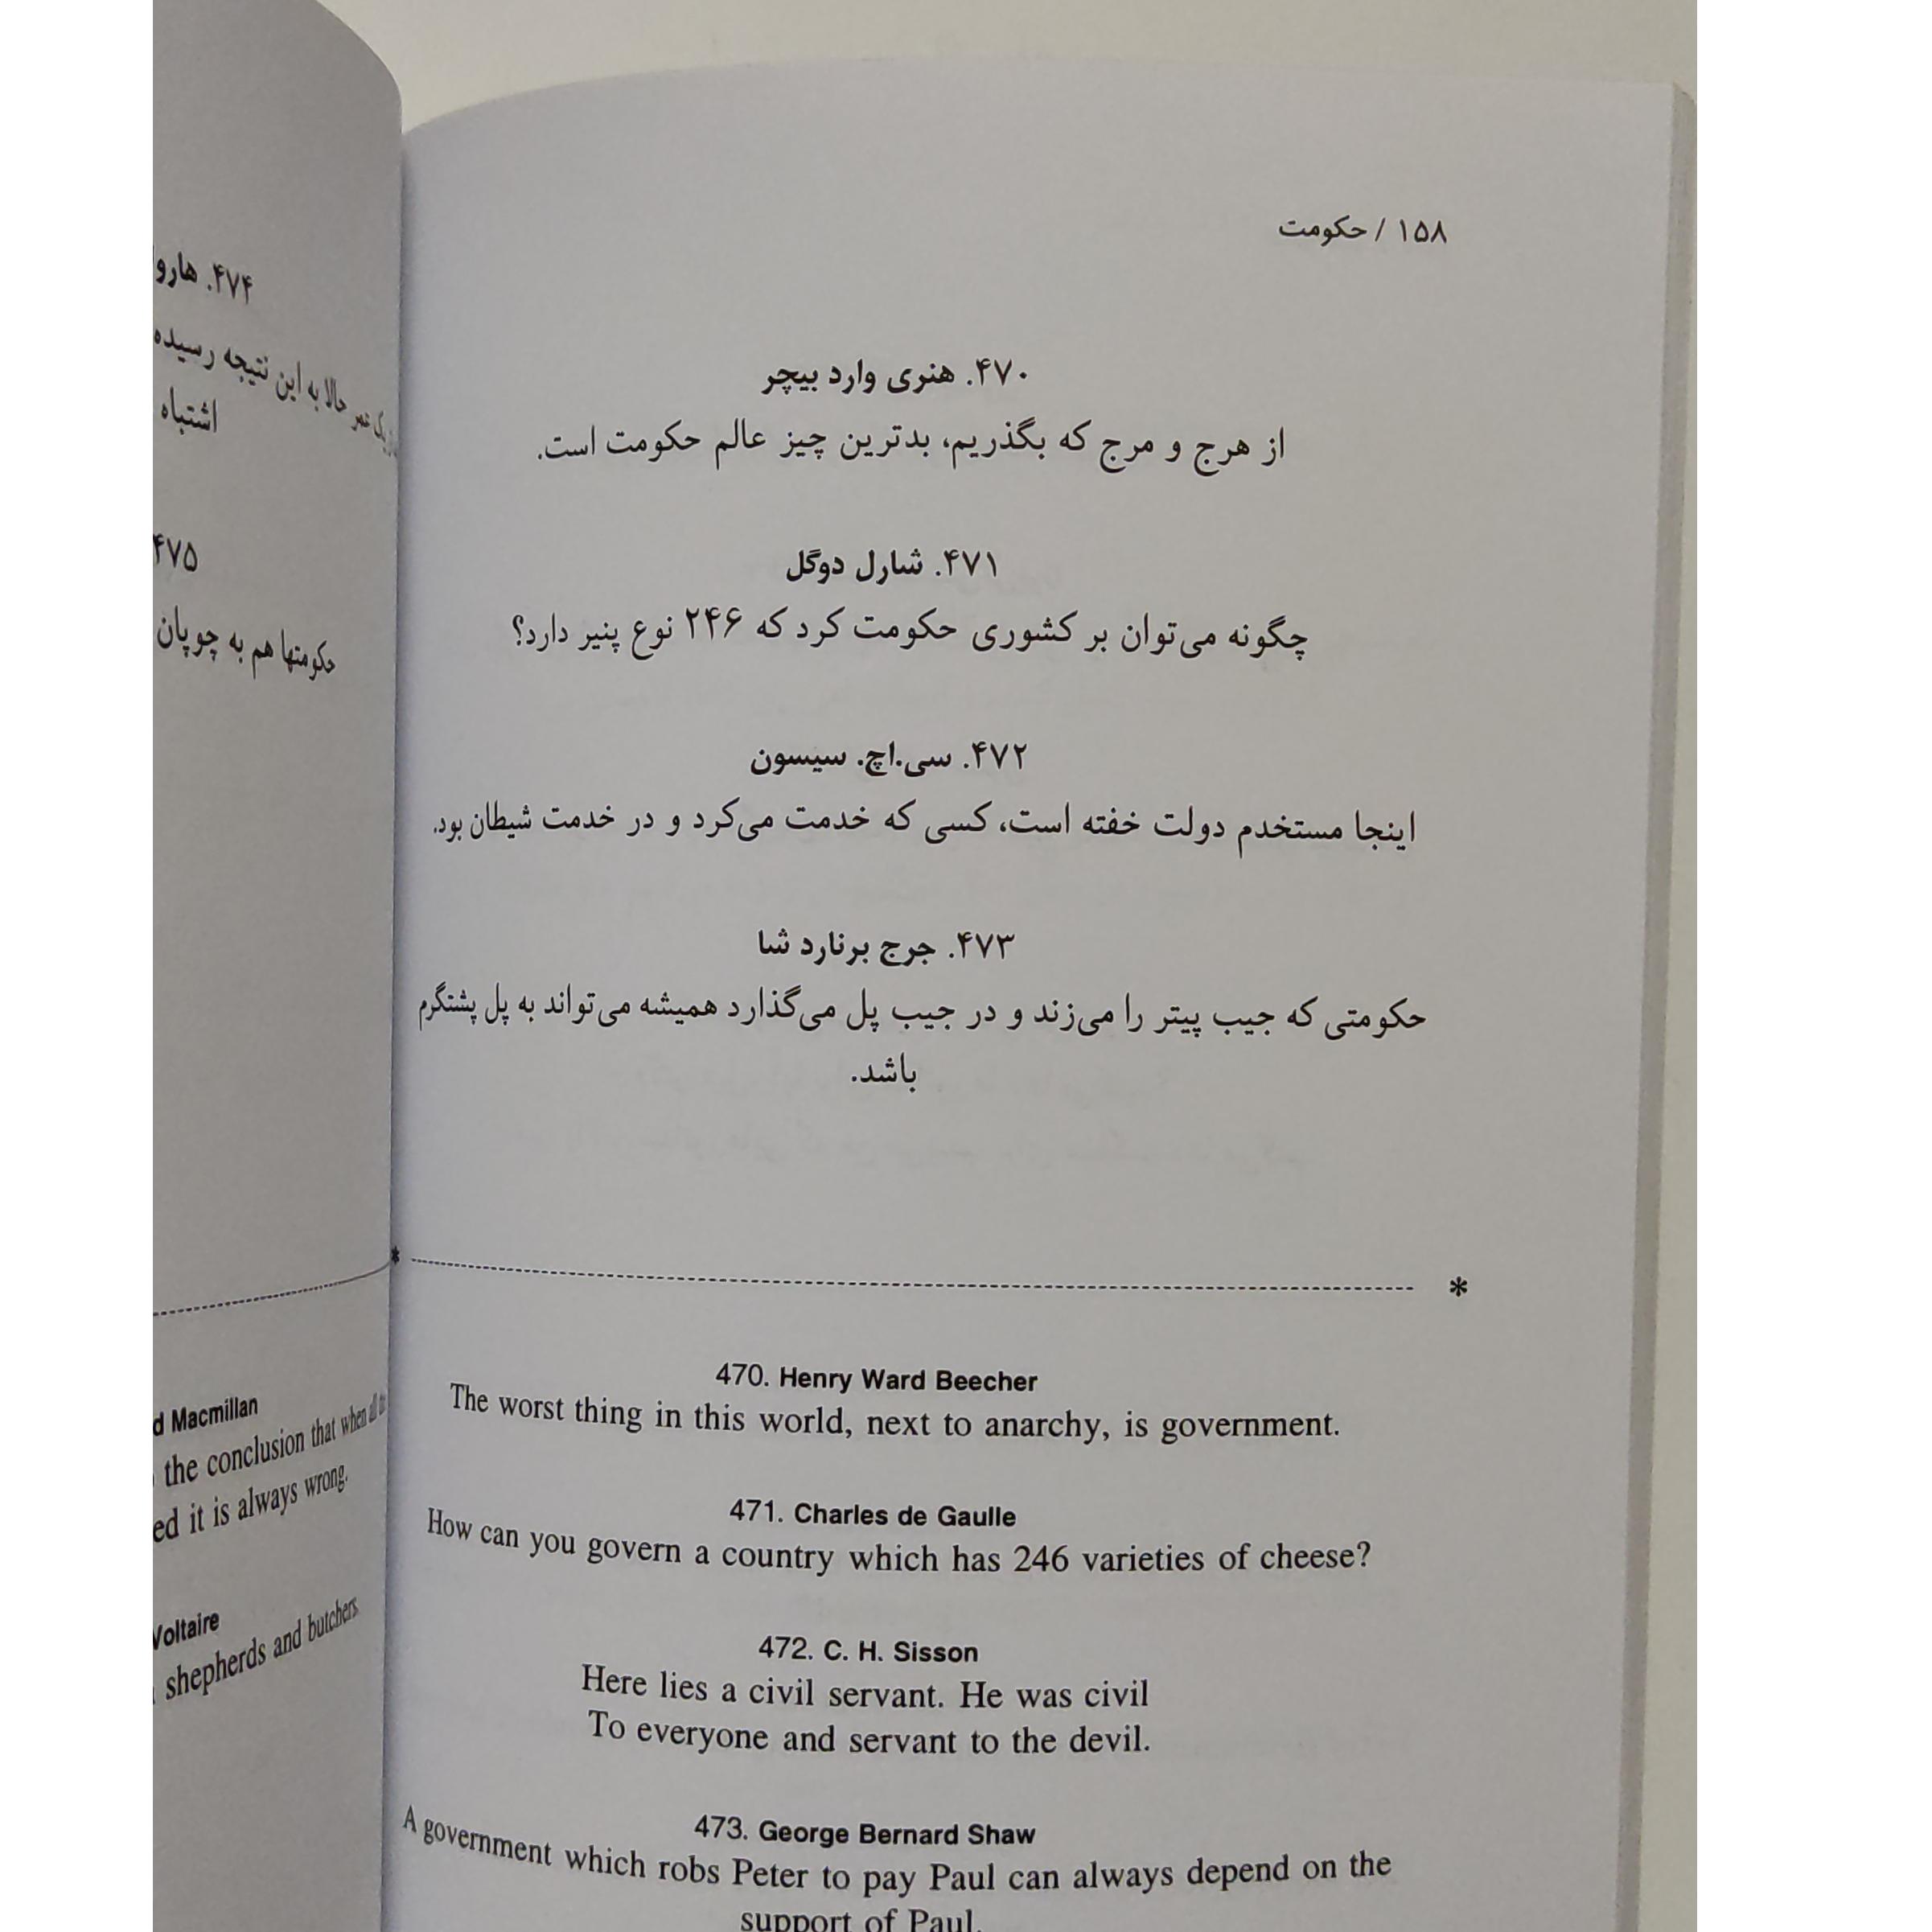 ۱۵۸ / حکومت
۴۷۰. هنری وارد بیچر
از هرج و مرج که بگذریم، بدترین چیز عالم حکومت است.
۴۷۱. شارل دوگل
چگونه می‌توان بر کشوری حکومت کرد که ۲۴۶ نوع پنیر دارد؟
۴۷۲. سی.اچ. سیسون
اینجا مستخدم دولت خفته است، کسی که خدمت می‌کرد و در خدمت شیطان بود.
۴۷۳. جرج برنارد شا
حکومتی که جیب پیتر را می‌زند و در جیب پل می‌گذارد همیشه می‌تواند به پل پشتگرم
باشد.
* *
470. Henry Ward Beecher
The worst thing in this world, next to anarchy, is government.
471. Charles de Gaulle
How can you govern a country which has 246 varieties of cheese?
472. C. H. Sisson
Here lies a civil servant. He was civil
To everyone and servant to the devil.
473. George Bernard Shaw
A government which robs Peter to pay Paul can always depend on the
support of Paul.
۴۷۴. هارو
یک عمر حالا به این نتیجه رسیده
اشتباه
۴۷۵
حکومتها هم به چوپان
d Macmillan
the conclusion that when all
ed it is always wrong.
Voltaire
shepherds and butchers.